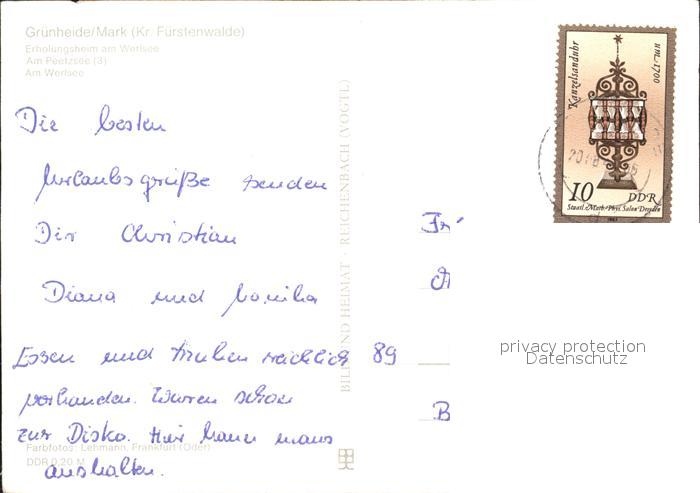 Grünheide/Mark (Kr. Fürstenwalde)
Erholungsheim am Werlsee
Am Peetzsee (3)
Am Werlsee
Kanzelsanduhr
um 1700
10 DDR
Staatl. Math.-Phys. Salon Dresden
Die besten
Urlaubsgrüße senden
Dir Christian
Diana und Monika
Essen und trinken reichlich
vorhanden. Waren schon
zur Disko. Hier kann mans
aushalten.
Farbfotos: Lehmann, Frankfurt (Oder)
DDR 0,20 M
BILD UND HEIMAT · REICHENBACH (VOGTL)
89
B
privacy protection
Datenschutz